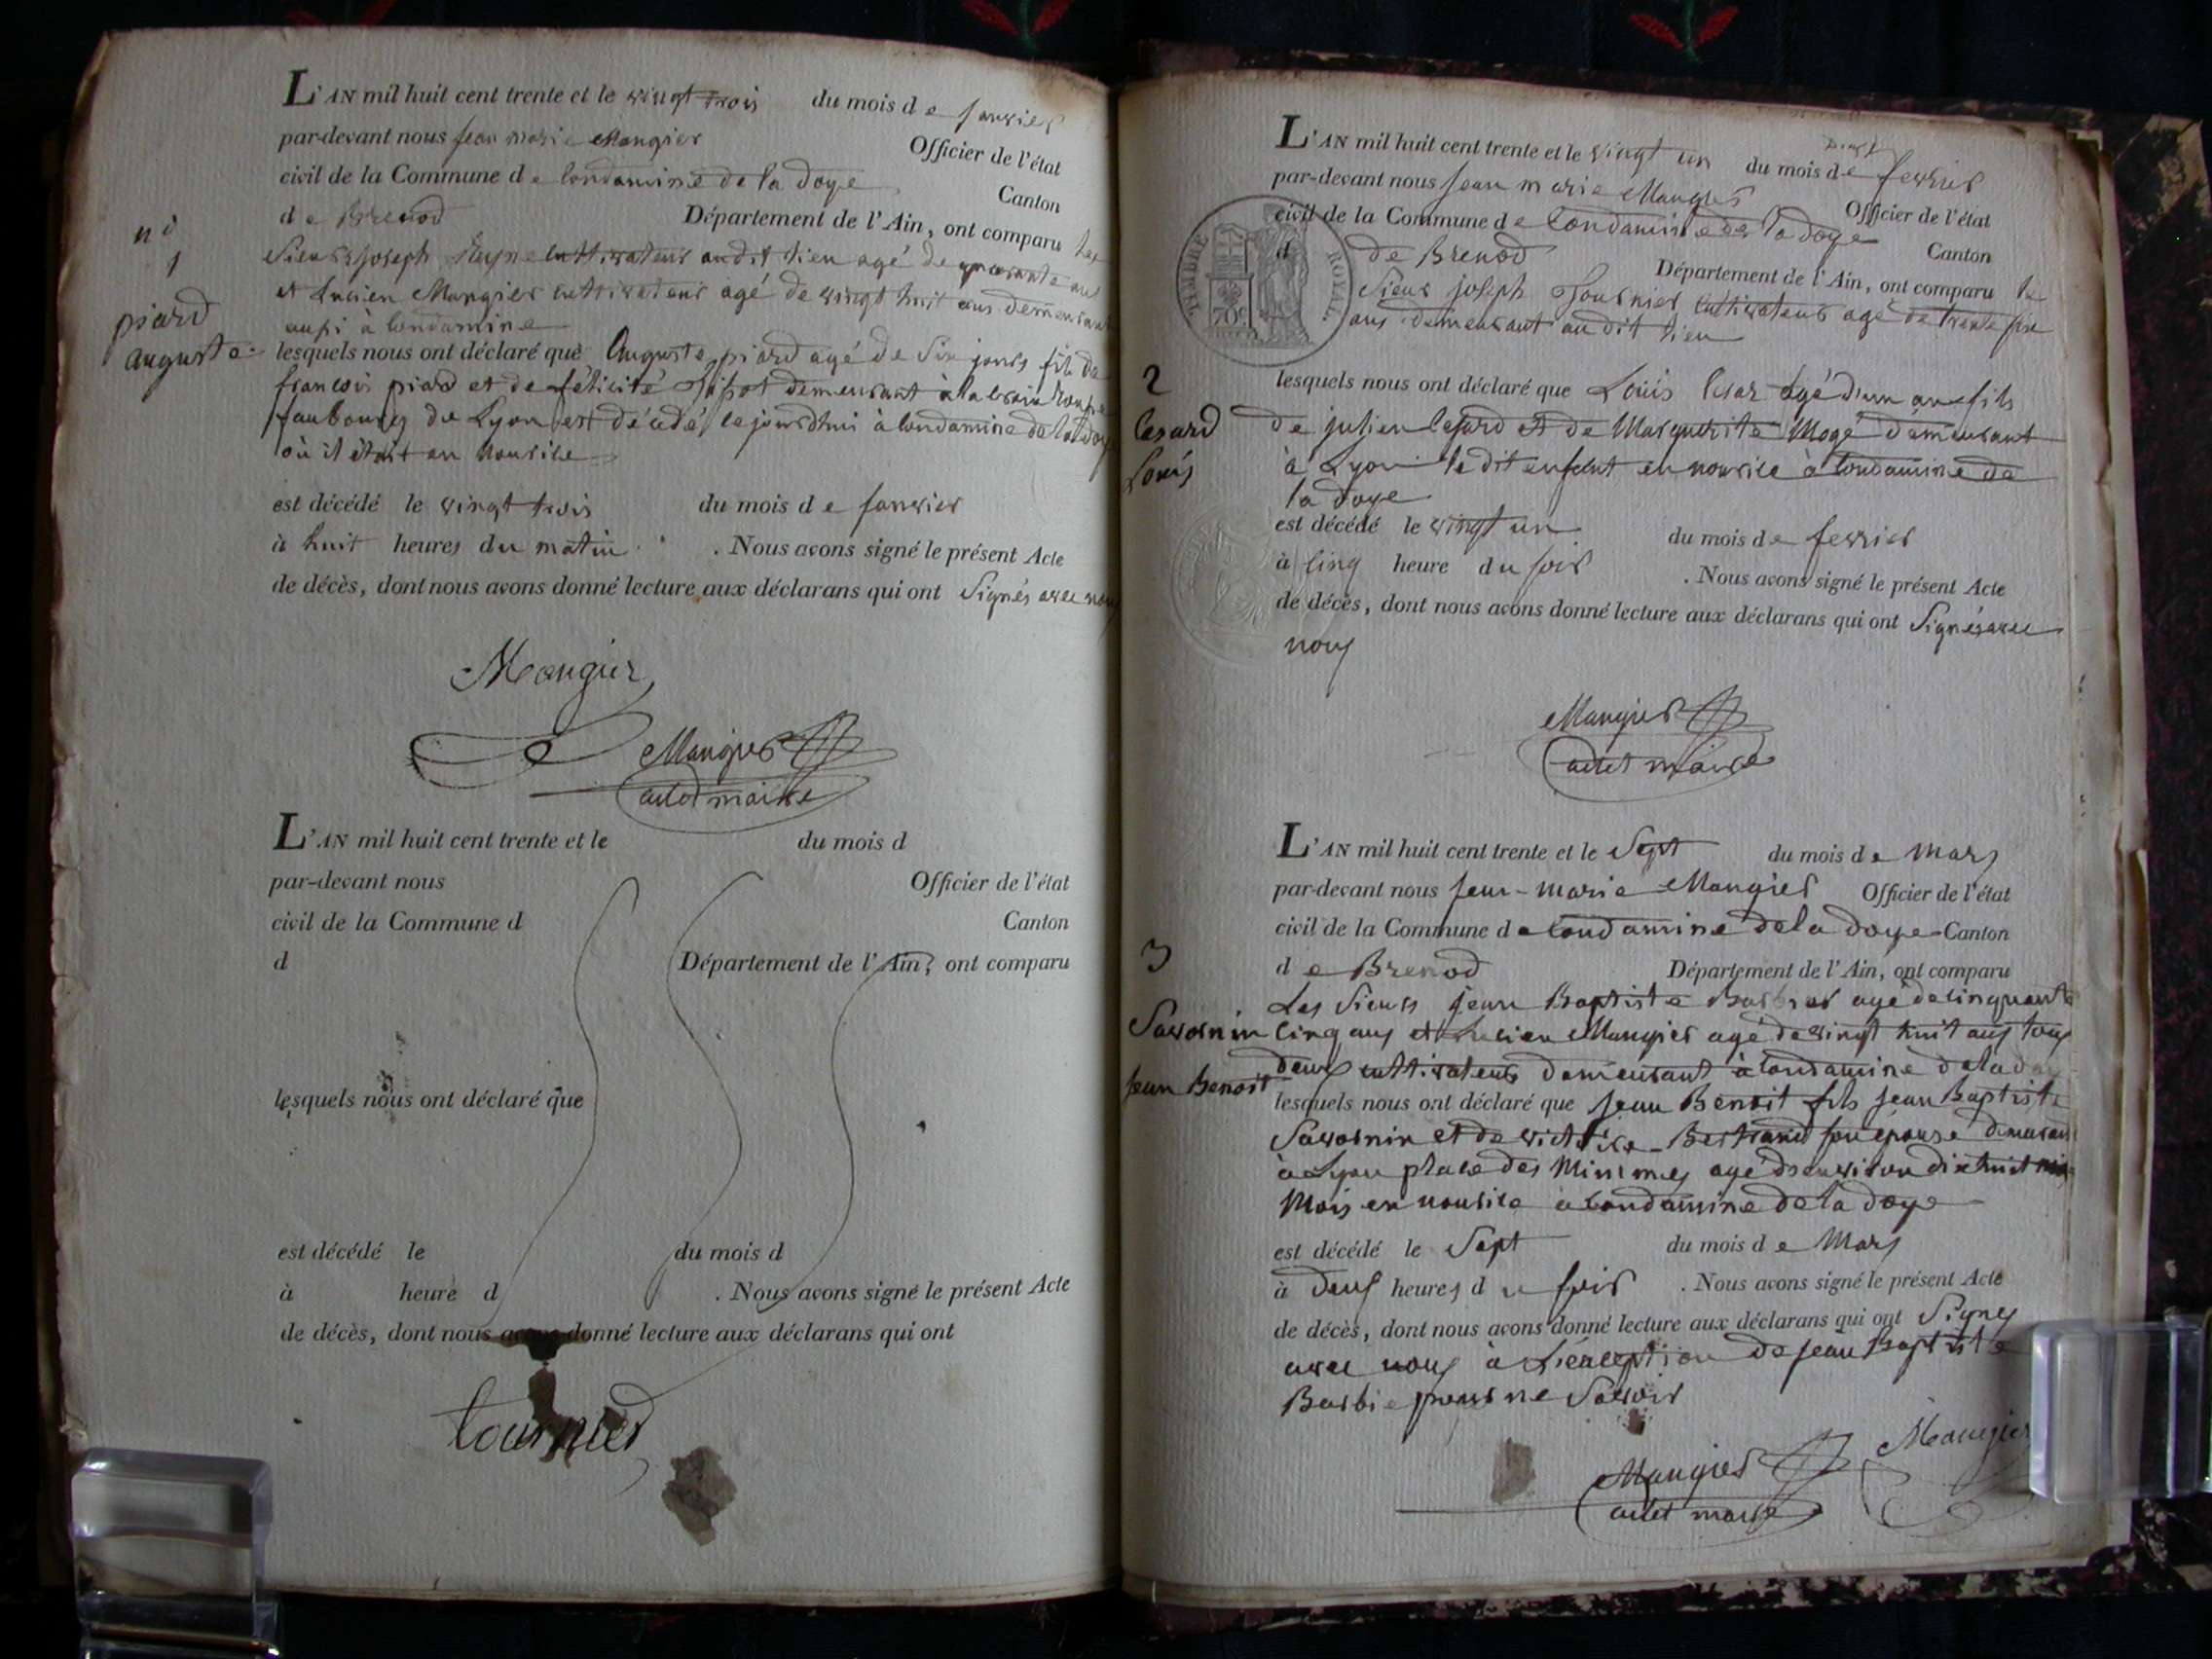 L'AN mil huit cent trente et le vingt trois du mois de janvier
par-devant nous jean marie Mangier Officier de l'état
civil de la Commune de Condamine de la doye Canton
de Brenod Département de l'Ain, ont comparu les
Sieurs joseph cultivateur audit lieu agé de quarante ans
et Lucien Mangier cultivateur agé de vingt huit ans demeurant
aussi à Condamine
lesquels nous ont déclaré que Auguste piard agé de Six jours fils de
francois piard et de félicité demeurant à la croix rousse
faubourg de Lyon est décédé cejourdhui à Condamine de la doye
où il était en nourice
n°
1
piard
auguste
est décédé le vingt trois du mois de janvier
à huit heures du matin . Nous avons signé le présent Acte
de décès, dont nous avons donné lecture aux déclarans qui ont Signés avec nous
Mangier
Mangier
adet maire
L'AN mil huit cent trente et le du mois d
par-devant nous Officier de l'état
civil de la Commune d Canton
d Département de l'Ain, ont comparu
lesquels nous ont déclaré que
est décédé le du mois d
à heure d . Nous avons signé le présent Acte
de décès, dont nous avons donné lecture aux déclarans qui ont
tournier
L'AN mil huit cent trente et le vingt un du mois de fevrier
par-devant nous jean marie Mangier Officier de l'état
civil de la Commune de Condamine de la doye Canton
d de Brenod Département de l'Ain, ont comparu le
Sieur joseph Tournier cultivateur agé de trente six
ans demeurant au dit lieu
TIMBRE ROYAL
70c
2
Cesard
Louis
lesquels nous ont déclaré que Louis Cesar agé d'un an fils
de julien Cesard et de Marguerite Mogé demeurant
à Lyon le dit enfant en nourice à Condamine de
la doye
est décédé le vingt un du mois de fevrier
à cinq heure du soir . Nous avons signé le présent Acte
de décès, dont nous avons donné lecture aux déclarans qui ont Signés avec
nous
Mangier
adet maire
L'AN mil huit cent trente et le Sept du mois de Mars
par-devant nous jean-marie Mangier Officier de l'état
civil de la Commune de Condamine de la doye Canton
de Brenod Département de l'Ain, ont comparu
Les Sieurs jean Baptiste agé de cinquante
cinq ans et Lucien Mangier agé de vingt huit ans tous
deux cultivateurs demeurant à Condamine de la doye
3
Savornin
jean Benoit
lesquels nous ont déclaré que jean Benoit fils jean Baptiste
Savornin et de victoire Bertrand son épouse demeurant
à Lyon place des Minimes agé d'environ dix huit
Mois en nourice à Condamine de la doye
est décédé le Sept du mois de Mars
à deux heures du soir . Nous avons signé le présent Acte
de décès, dont nous avons donné lecture aux déclarans qui ont Signes
avec nous à L'exception de jean Baptiste
Barbie pour ne Savoir
Mangier
Mangier
adet maire